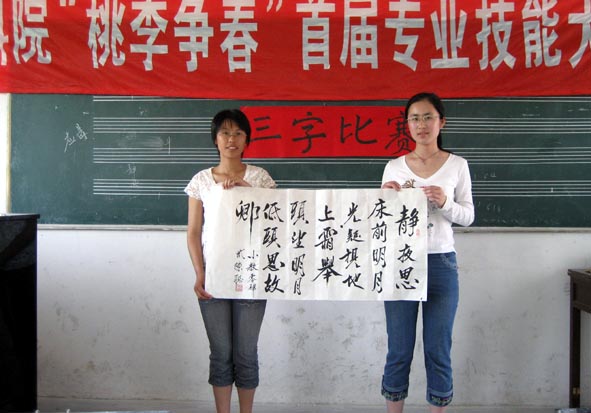 院“桃李争春”首届专业技能大
三字比赛
静夜思
床前明月
光疑是地
上霜舉
頭望明月
低頭思故
鄉